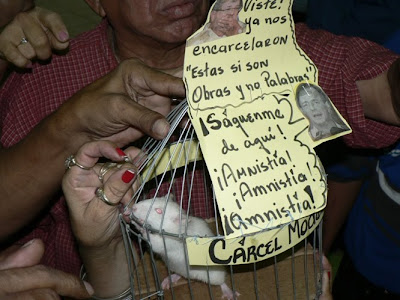 Viste!
ya nos
encarcelaron
"Estas si son
Obras y no Palabras"
¡Sáquenme
de aquí!
¡Amnistía!
¡Amnistía!
¡Amnistía!
CÁRCEL